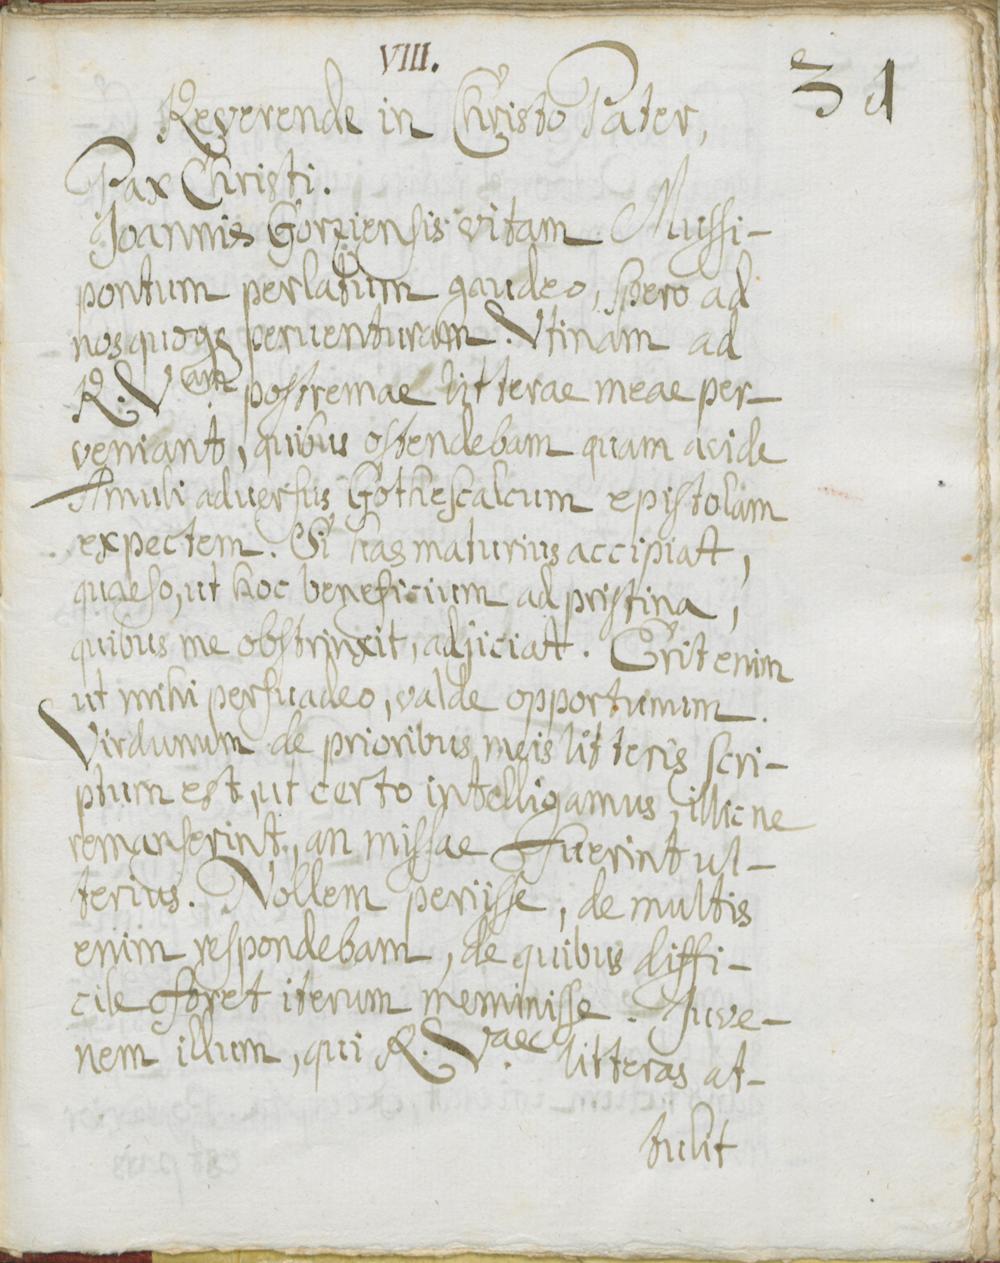 VIII.
31
Reverende in Christo Pater,
Pax Christi.
Joannis Gorziensis vitam Mussi-
pontum perlatum gaudeo, spero ad
nos quoqs peruenturam. Vtinam ad
R. Vam postremae litterae meae per-
veniant, quibus ostendebam quam avide
Amuli aduersus Gothescalcum epistolam
expectem. Si has maturius accipiat,
quaeso, ut hoc beneficium ad pristina,
quibus me obstrinxit, adjiciat. Erit enim
ut mihi persuadeo, valde opportunum.
Virdunum de prioribus meis litteris scri-
ptum est, ut certo intelligamus, illic ne
remanserint, an missae fuerint ul-
terius. Nollem periisse, de multis
enim respondebam, de quibus diffi-
cile foret iterum meminisse. Juve-
nem illum, qui R. Vae litteras at-
tulit